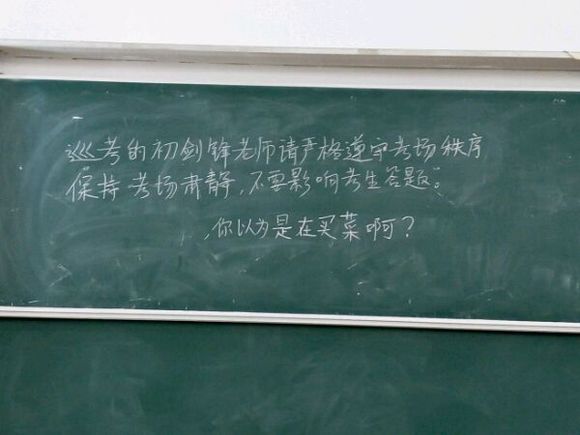 巡考的初剑锋老师请严格遵守考场秩序
“保持考场肃静,不要影响考生答题”。
,你以为是在买菜啊?